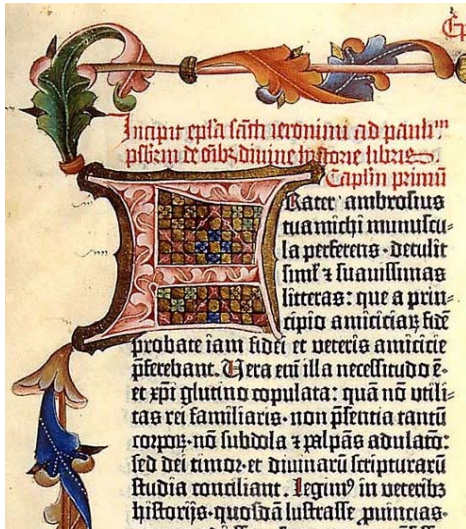 Incipit epl̃a sãcti ieronimi ad pauliñm
p̃sbĩm de oĩbꝫ divine historie libris.
Caplm̃ primũ
FRater ambrosius
tua michi munuscu-
la perferens · detulit
siml̃ ⁊ suauissimas
litteras: que a prin-
cipio amiciciaꝝ fidē
probate iam fidei et veteris amicicie
p̃ferebant. Vera eñi illa necessitudo ē·
et xp̃i glutino copulata: quā nō vtili-
tas rei familiaris · non p̃sentia tantū
corpoꝝ · nō subdola ⁊ palpās adulatō:
sed dei timor · et diuinarū scripturarū
studia conciliant. Legimꝰ in veteribꝫ
historijs · quosdā lustrasse ꝓuincias·